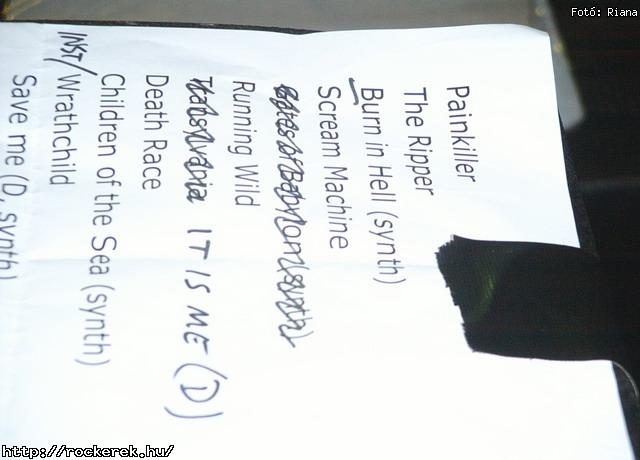 Fotó: Riana
Painkiller
The Ripper
Burn in Hell (synth)
Scream Machine
Gates of Babylon (synth)
Running Wild
Transylvania IT IS ME (D)
Death Race
Children of the Sea (synth)
INST/Wrathchild
Save me (D, synth)
http://rockerek.hu/